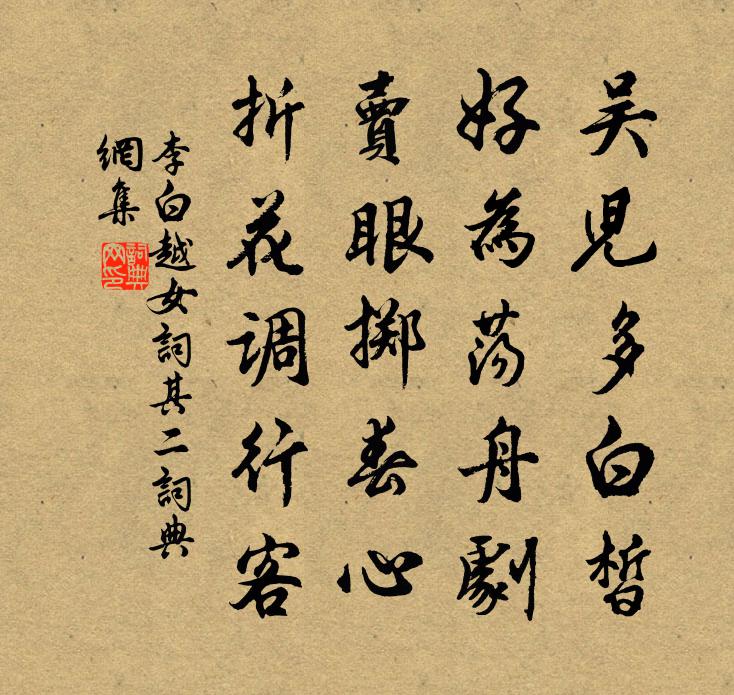 吴児多白皙
好為荡舟劇
賣眼擲春心
折花调行客
李白越女詞其二詞典
網集
詞典
网印